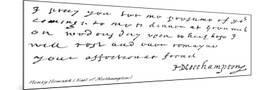 I pray you lett me promise of yr
coming to me to dinner at Grenwich
on wednesday upon which hope I
will rest and ever remayne
your affectionat frend
HNorthampton
Henry Howard (Earl of Northampton)